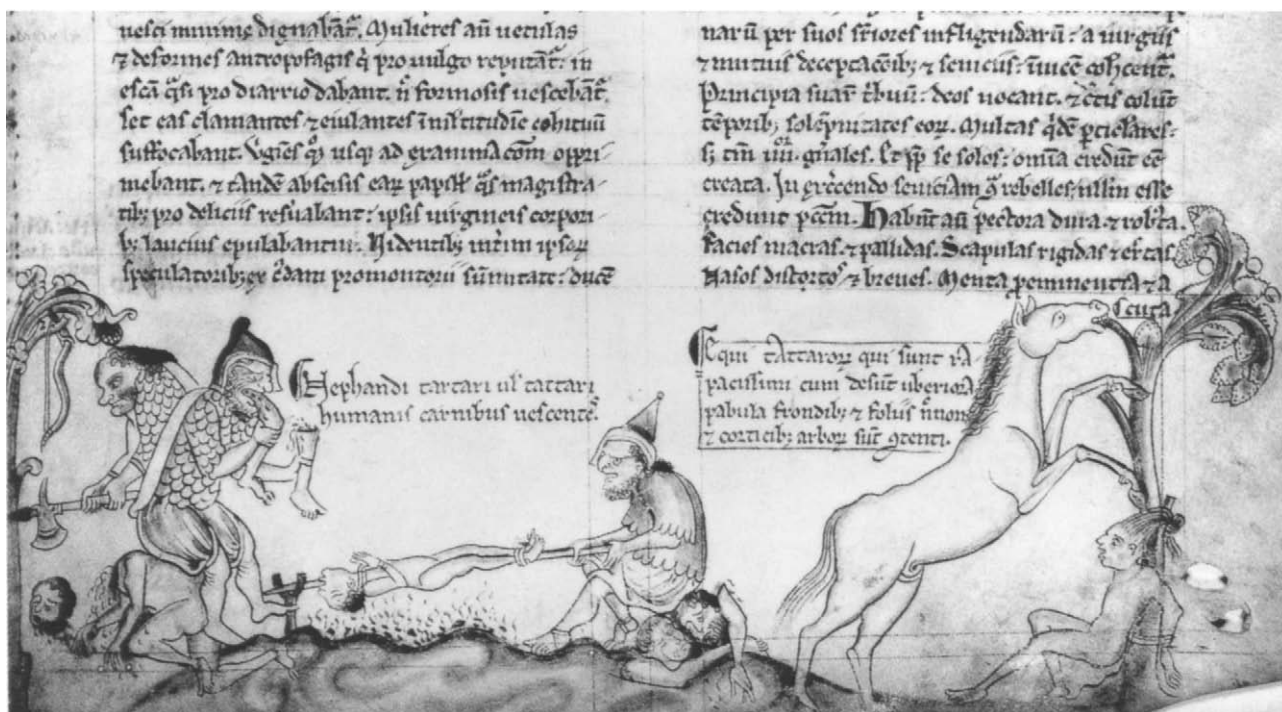 uesci minime dignabant̃. Mulieres aũ uetulas
⁊ deformes antropofagis q̃ pro uulgo reputãt̃: in
escã q̃si pro diarrio dabant. ñ formosis uescebãt̃.
set eas clamantes ⁊ eiulantes ĩ multitudĩe cohituũ
suffocabant. Ugĩes q̃q usq; ad exanimacõm oppri-
mebant. ⁊ tandẽ abscisis earꝝ papill' q̃s magistra-
tib; pro deliciis resuabant: ipsis uirgineis corpori-
b; laucius epulabantur. Uidentib; int̃im ipsoꝝ
speculatorib; ex c̃dam promontorii sũmitate: ducẽ
Nephandi tartari ul' tattari
humanis carnibus uescentes.
narũ per suos ſc̃iores infligendarũ: a uirgiis
⁊ mutuis deceptac̃oib; ⁊ seuiciis: ĩuicẽ cohcent̃.
Principia suaꝝ t̃buũ: deos uocant. ⁊ c̃tis colũt
tẽporib; solẽpnitates eoꝝ. Multas q̃dẽ p̃ticlares:
s; tm̃ iiii.or g̃nales. Et pp̃ se solos: om̃ia credũt eẽ
creata. In ex̃cendo seuiciam ĩ rebelles: nullũ esse
credunt pcc̃m. Habñt aũ pectora dura. ⁊ rob̃ta.
Facies macras. ⁊ pallidas. Scapulas rigidas ⁊ er̃tas.
Nasos distortos ⁊ breues. Menta p̃eminentia ⁊ a
cuta
Equi tattaroꝝ qui sunt ra-
pacissimi cum desũt uberiora
pabula frondib; ⁊ foliis ñnon
⁊ corticib; arboꝝ sũt ꝯtenti.